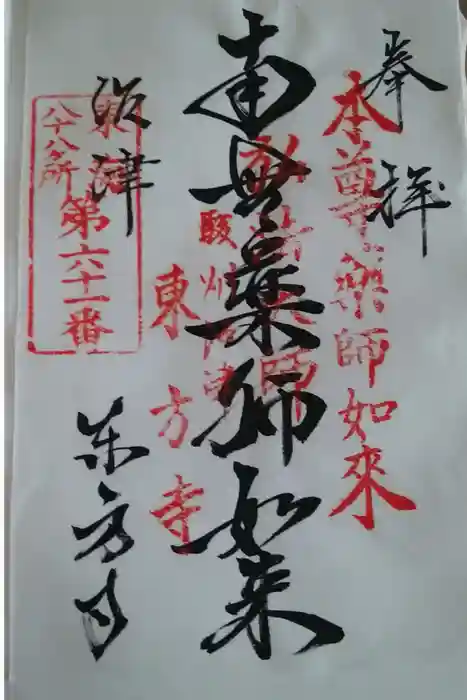 奉拝
本尊薬師如來
南無薬師如来
駿州沼津
東方寺
沼津
東方寺
東
八十八ヶ所
第六十一番